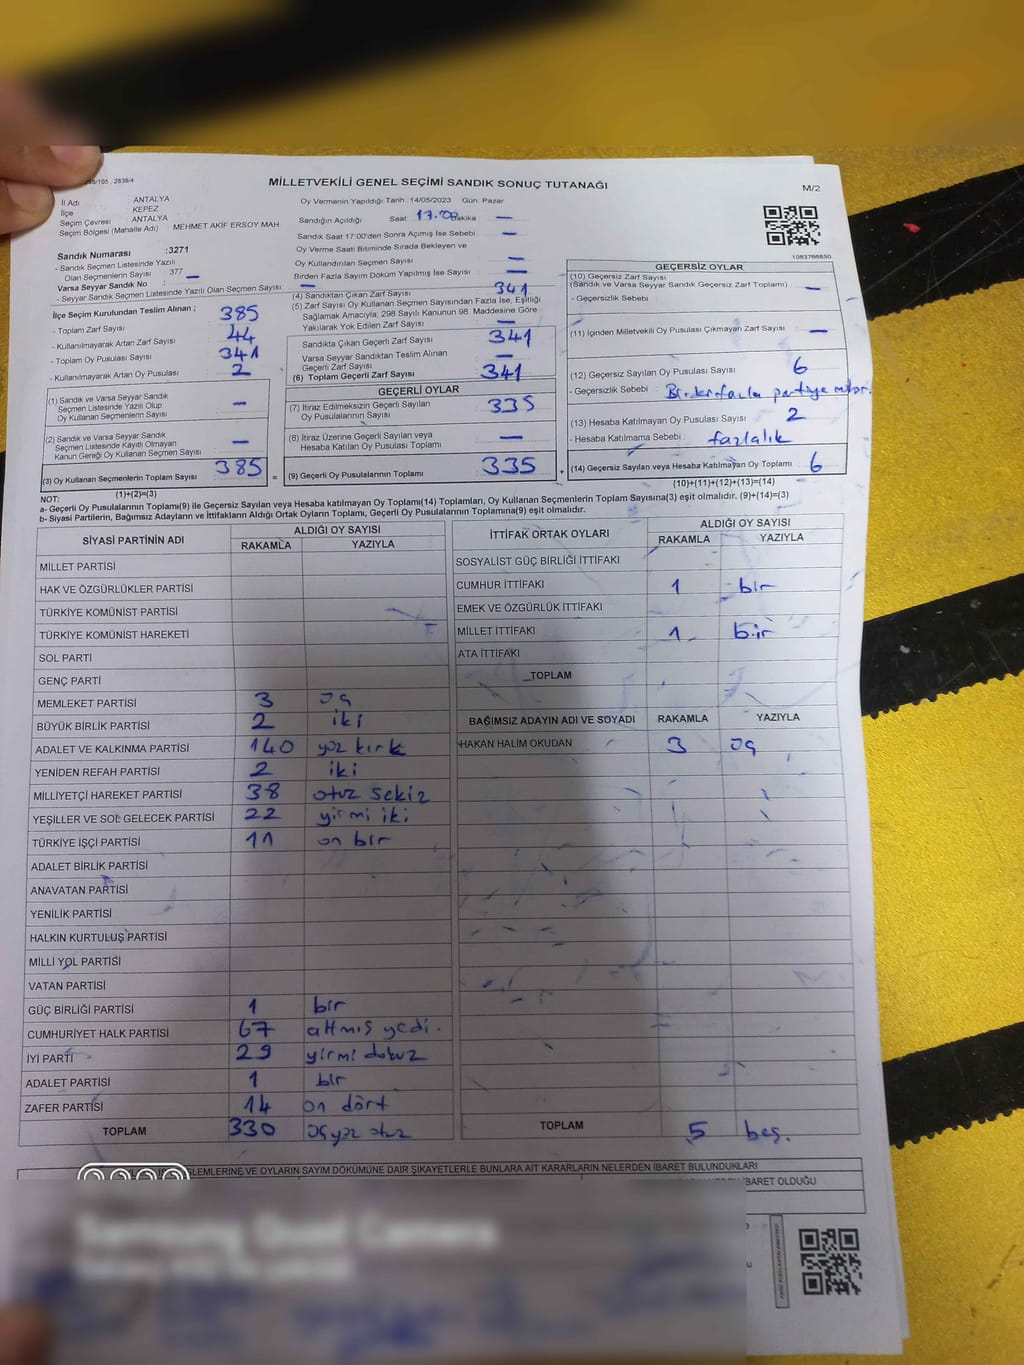 MİLLETVEKİLİ GENEL SEÇİMİ SANDIK SONUÇ TUTANAĞI
M/2
İl Adı ANTALYA
İlçe KEPEZ
Seçim Çevresi ANTALYA
Seçim Bölgesi (Mahalle Adı) MEHMET AKİF ERSOY MAH
Sandık Numarası :3271
- Sandık Seçmen Listesinde Yazılı
Olan Seçmenlerin Sayısı 377 -
Varsa Seyyar Sandık No :
- Seyyar Sandık Seçmen Listesinde Yazılı Olan Seçmen Sayısı : -
Oy Vermenin Yapıldığı Tarih :14/05/2023 Gün: Pazar
Sandığın Açıldığı Saat: 17:00 Dakika -
Sandık Saat 17:00'den Sonra Açılmış İse Sebebi : -
Oy Verme Saati Bitiminde Sırada Bekleyen ve
Oy Kullandırılan Seçmen Sayısı -
Birden Fazla Sayım Döküm Yapılmış İse Sayısı -
1083766850
İlçe Seçim Kurulundan Teslim Alınan ;
- Toplam Zarf Sayısı 385
- Kullanılmayarak Artan Zarf Sayısı 44
- Toplam Oy Pusulası Sayısı 341
- Kullanılmayarak Artan Oy Pusulası 2
(1) Sandık ve Varsa Seyyar Sandık
Seçmen Listesinde Yazılı Olup
Oy Kullanan Seçmenlerin Sayısı -
(2) Sandık ve Varsa Seyyar Sandık
Seçmen Listesinde Kayıtlı Olmayan
Kanun Gereği Oy Kullanan Seçmen Sayısı -
(3) Oy Kullanan Seçmenlerin Toplam Sayısı 385
(1)+(2)=(3)
(4) Sandıktan Çıkan Zarf Sayısı 341
(5) Zarf Sayısı Oy Kullanan Seçmen Sayısından Fazla İse, Eşitliği
Sağlamak Amacıyla, 298 Sayılı Kanunun 98. Maddesine Göre
Yakılarak Yok Edilen Zarf Sayısı -
Sandıkta Çıkan Geçerli Zarf Sayısı 341
Varsa Seyyar Sandıktan Teslim Alınan
Geçerli Zarf Sayısı -
(6) Toplam Geçerli Zarf Sayısı 341
GEÇERLİ OYLAR
(7) İtiraz Edilmeksizin Geçerli Sayılan
Oy Pusulalarının Sayısı 335
(8) İtiraz Üzerine Geçerli Sayılan veya
Hesaba Katılan Oy Pusulalarının Sayısı -
(9) Geçerli Oy Pusulalarının Toplamı 335
GEÇERSİZ OYLAR
(10) Geçersiz Zarf Sayısı
(Sandık ve Varsa Seyyar Sandık Geçersiz Zarf Toplamı) -
- Geçersizlik Sebebi :
(11) İçinden Milletvekili Oy Pusulası Çıkmayan Zarf Sayısı -
(12) Geçersiz Sayılan Oy Pusulası Sayısı 6
- Geçersizlik Sebebi : Birden fazla partiye
(13) Hesaba Katılmayan Oy Pusulası Sayısı 2
- Hesaba Katılmama Sebebi : fazlalık
(14) Geçersiz Sayılan veya Hesaba Katılmayan Oy Toplamı 6
(10)+(11)+(12)+(13)=(14)
NOT:
a- Geçerli Oy Pusulalarının Toplamı(9) ile Geçersiz Sayılan veya Hesaba katılmayan Oy Toplamı(14) Toplamları, Oy Kullanan Seçmenlerin Toplam Sayısına(3) eşit olmalıdır. (9)+(14)=(3)
b- Siyasi Partilerin, Bağımsız Adayların ve İttifakların Aldığı Ortak Oyların Toplamı, Geçerli Oy Pusulalarının Toplamına(9) eşit olmalıdır.
SİYASİ PARTİNİN ADI ALDIĞI OY SAYISI
RAKAMLA YAZIYLA
MİLLET PARTİSİ
HAK VE ÖZGÜRLÜKLER PARTİSİ
TÜRKİYE KOMÜNİST PARTİSİ
TÜRKİYE KOMÜNİST HAREKETİ
SOL PARTİ
GENÇ PARTİ
MEMLEKET PARTİSİ 3 üç
BÜYÜK BİRLİK PARTİSİ 2 iki
ADALET VE KALKINMA PARTİSİ 140 yüz kırk
YENİDEN REFAH PARTİSİ 2 iki
MİLLİYETÇİ HAREKET PARTİSİ 38 otuz sekiz
YEŞİLLER VE SOL GELECEK PARTİSİ 22 yirmi iki
TÜRKİYE İŞÇİ PARTİSİ 11 on bir
ADALET BİRLİK PARTİSİ
ANAVATAN PARTİSİ
YENİLİK PARTİSİ
HALKIN KURTULUŞ PARTİSİ
MİLLİ YOL PARTİSİ
VATAN PARTİSİ
GÜÇ BİRLİĞİ PARTİSİ 1 bir
CUMHURİYET HALK PARTİSİ 67 altmış yedi.
İYİ PARTİ 29 yirmi dokuz
ADALET PARTİSİ 1 bir
ZAFER PARTİSİ 14 on dört
TOPLAM 330 üçyüz otuz
İTTİFAK ORTAK OYLARI ALDIĞI OY SAYISI
RAKAMLA YAZIYLA
SOSYALİST GÜÇ BİRLİĞİ İTTİFAKI
CUMHUR İTTİFAKI 1 bir
EMEK VE ÖZGÜRLÜK İTTİFAKI
MİLLET İTTİFAKI 1 bir
ATA İTTİFAKI
TOPLAM
BAĞIMSIZ ADAYIN ADI VE SOYADI RAKAMLA YAZIYLA
HAKAN HALİM OKUDAN 3 üç
TOPLAM 5 beş.
İŞLEMLERİNE VE OYLARIN SAYIM DÖKÜMÜNE DAİR ŞİKAYETLERLE BUNLARA AİT KARARLARIN NELERDEN İBARET BULUNDUKLARI
İBARET OLDUĞU
Samsung Quad Camera